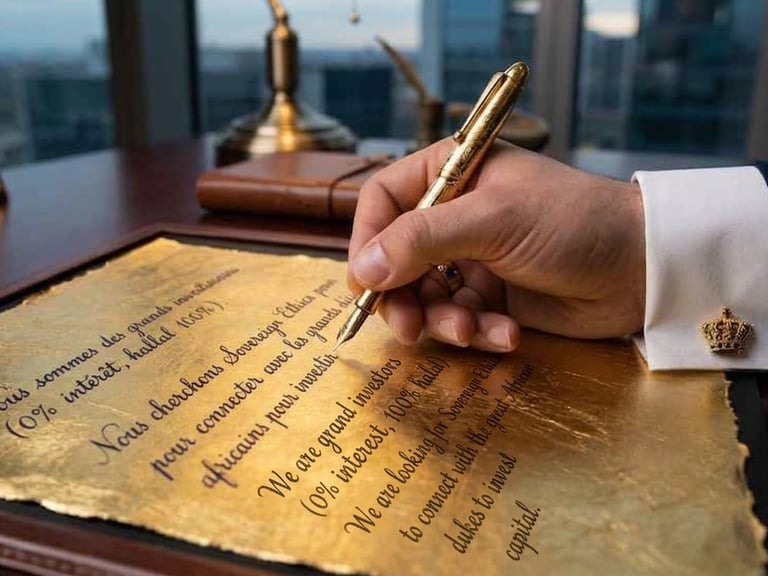 ous sommes des grands
(0% interêt, hallal 100%).
Nous cherchons Sovereign Ethics pour
pour connecter avec les grands
africains pour investir
We are grand investors
(0% interest, 100% halal)
We are looking for Sovereign Ethics
to connect with the great African
dukes to invest
capital.